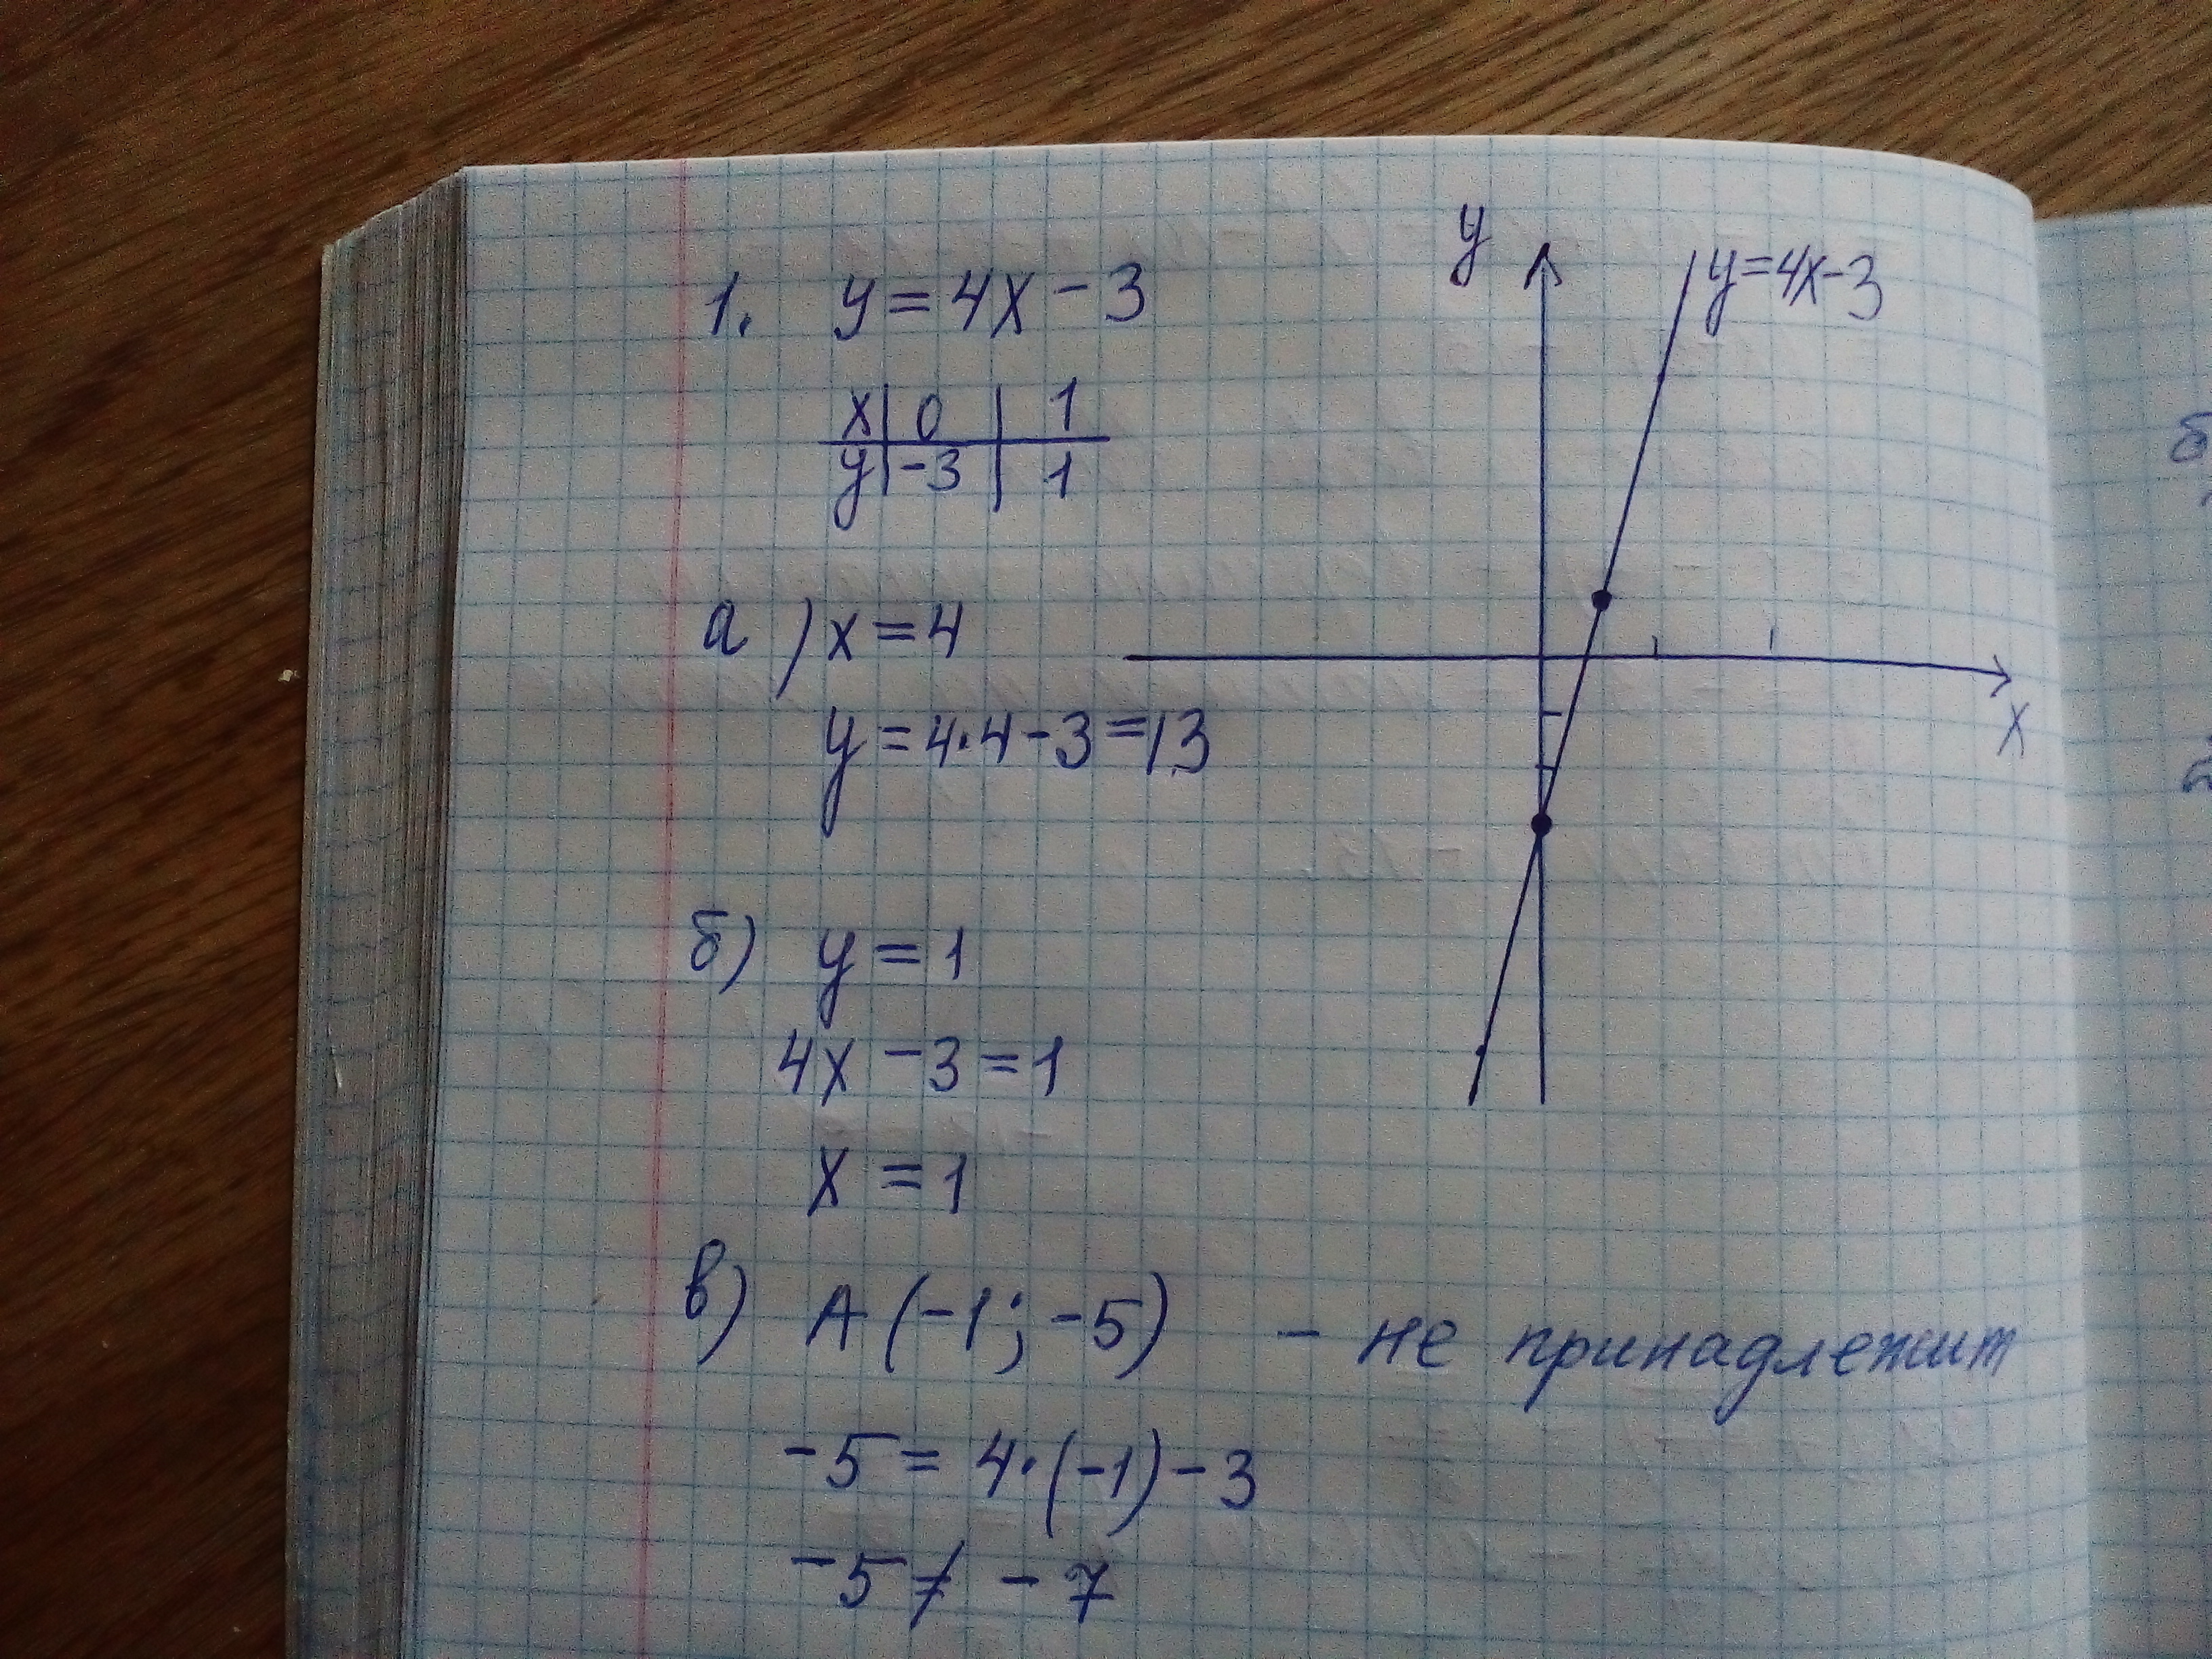 1. y = 4x - 3
x | 0 | 1
y | -3 | 1
а) x = 4
y = 4·4 - 3 = 13
б) y = 1
4x - 3 = 1
x = 1
в) A (-1; -5) - не принадлежит
-5 = 4·(-1) - 3
-5 ≠ -7
y
y=4x-3
x
б